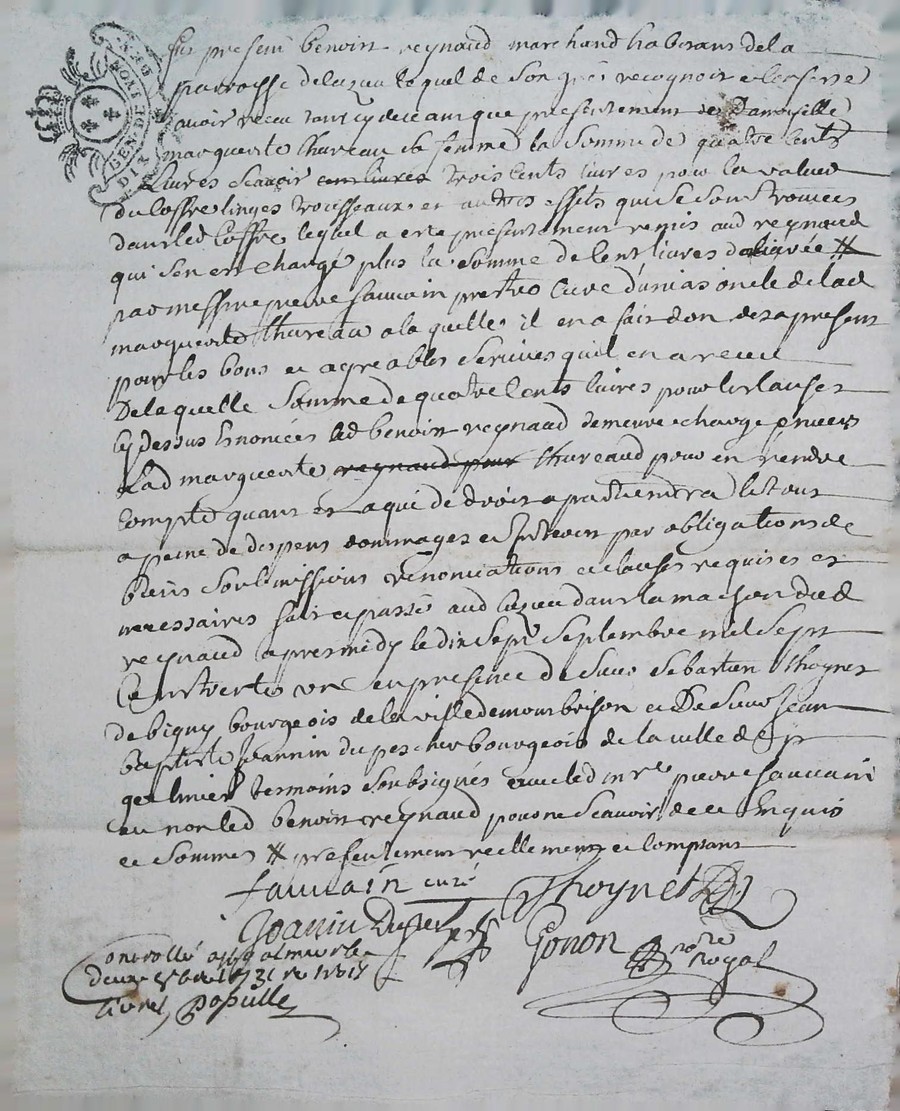 GEN. DE
DIX
fut present benoist reynaud marchand habitant de la
parroisse de lezeu lequel de son gré recognoit et confesse
avoir receu tant cy devant que presentement de Damoiselle
marguerite thureau sa femme la somme de quatre cents
livres scavoir cent livres trois cents livres pour la valeur
du coffre linges trousseaux et autres effets qui se sont trouvés
dans led coffre lequel a esté presentement remis aud reynaud
qui s'en est chargé plus la somme de cent livres
par messire pierre fauvain prestre curé d'unias oncle de lad
marguerite thureau a laquelle il en a fait don des a present
pour les bons et agreables services quil en a receu
De laquelle somme de quatre cents livres pour les causes
cy dessus enoncées led benoist reynaud demeure chargé envers
Lad marguerite reynaud pour thureaud pour en rendre
compte quant et a qui de droit apartiendra le tout
a peine de despens dommages et interets par obligations de
biens soubmissions renonciations et clauses requises et
necessaires fait et passé aud lezeu dans la maison dud
reynaud apres midy le dix sept septembre mil sept
cent trente un en presence de sieur sebastien thoynet
de bigny bourgeois de la ville de montbrison et De sieur jean
baptiste joannin du pescher bourgeois de la ville de st
galmier temoins soubsignés avec led mre pierre fauvain
et non led benoist reynaud pour ne scavoir de ce enquis
et sommés # presentement reellement et comptant
fauvain curé Thoynet
Joanin Dupes Gonon nore royal
Controllé a st galmier le
deux 8bre 1731 R trois
livres, Papulle